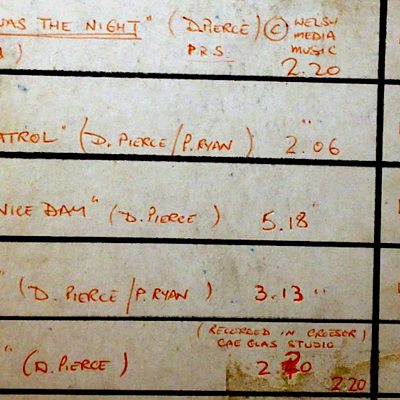 WAS THE NIGHT" (D. PIERCE) © WELSH
MEDIA
) P.R.S. MUSIC
2.20
ATROL" (D. PIERCE/P. RYAN) 2.06"
NICE DAY" (D. PIERCE) 5.18"
" (D. PIERCE/P. RYAN) 3.13"
(RECORDED IN CROESOR)
CAE GLAS STUDIO
" (D. PIERCE) 2.20
2.20